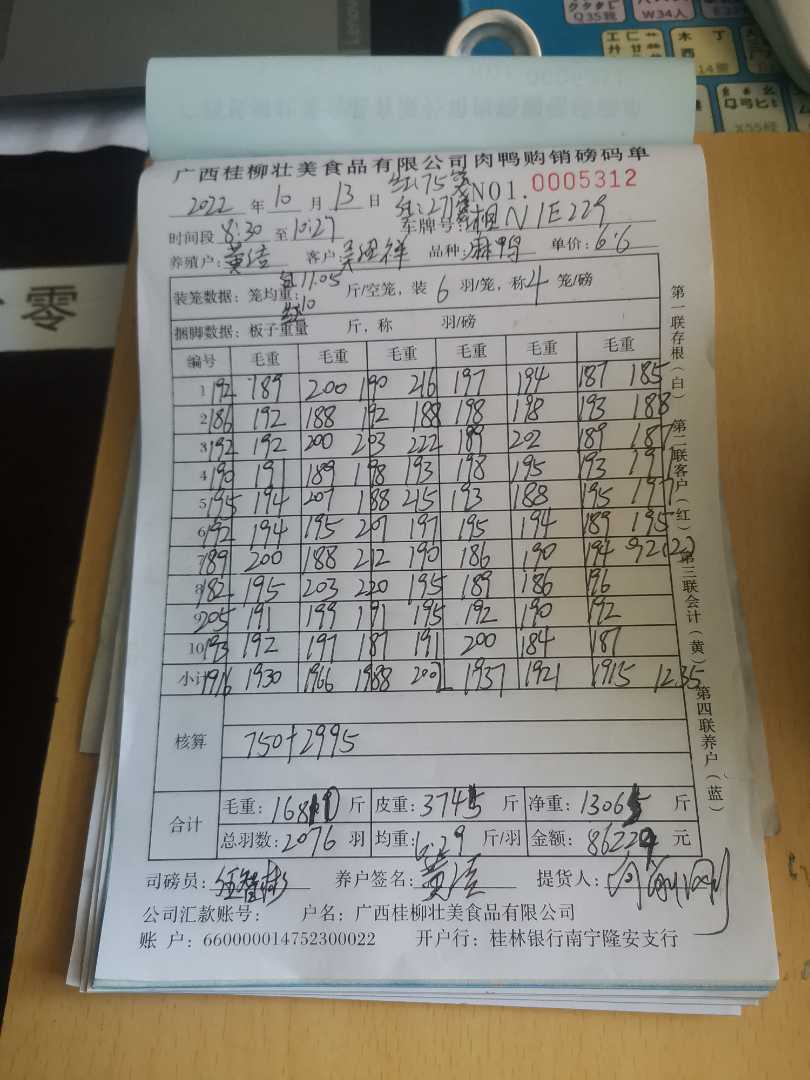 Lenovo
Q35我
W34人
14要
X55经
零
广西桂柳壮美食品有限公司肉鸭购销磅码单
红:75笼
2022 年 10 月 13 日 NO1. 0005312
红:271笼
时间段 8:30 至 10:27 车牌号: 湘N1E229
养殖户: 黄洁 客户: 品种: 麻鸭 单价: 6.6
装笼数据: 笼均重: 11.05 斤/空笼, 装 6 羽/笼, 称 4 笼/磅
红10
捆脚数据: 板子重量 斤, 称 羽/磅
编号 毛重 毛重 毛重 毛重 毛重 毛重
1 192 189 200 190 216 197 194 187 185
2 186 192 188 192 188 198 198 193 188
3 192 192 200 203 222 189 202 189 187
4 190 191 189 198 193 198 195 193 191
5 195 194 207 188 215 193 188 195 197
6 192 194 195 207 197 195 194 189 195
7 189 200 188 212 190 186 190 194 92(2)
8 182 195 203 220 195 189 186 196
9 205 191 199 191 195 192 190 192
10 193 192 197 187 191 200 184 187
小计 1916 1930 1966 1988 2002 1937 1921 1915 1235
核算 750+2995
合计 毛重: 16810 斤 皮重: 3745 斤 净重: 13065 斤
总羽数: 2076 羽 均重: 6.29 斤/羽 金额: 86229 元
司磅员: 养户签名: 黄洁 提货人:
公司汇款账号: 户名: 广西桂柳壮美食品有限公司
账 户: 660000014752300022 开户行: 桂林银行南宁隆安支行
第一联存根(白) 第二联客户(红) 第三联会计(黄) 第四联养户(蓝)